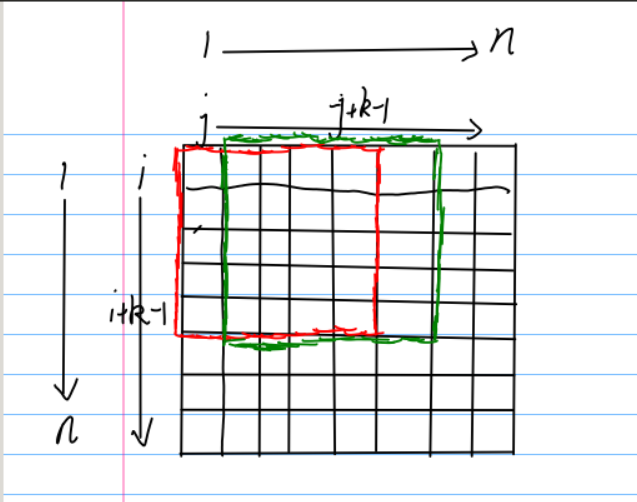 1 n
j j+k-1
1 i
i+k-1
n